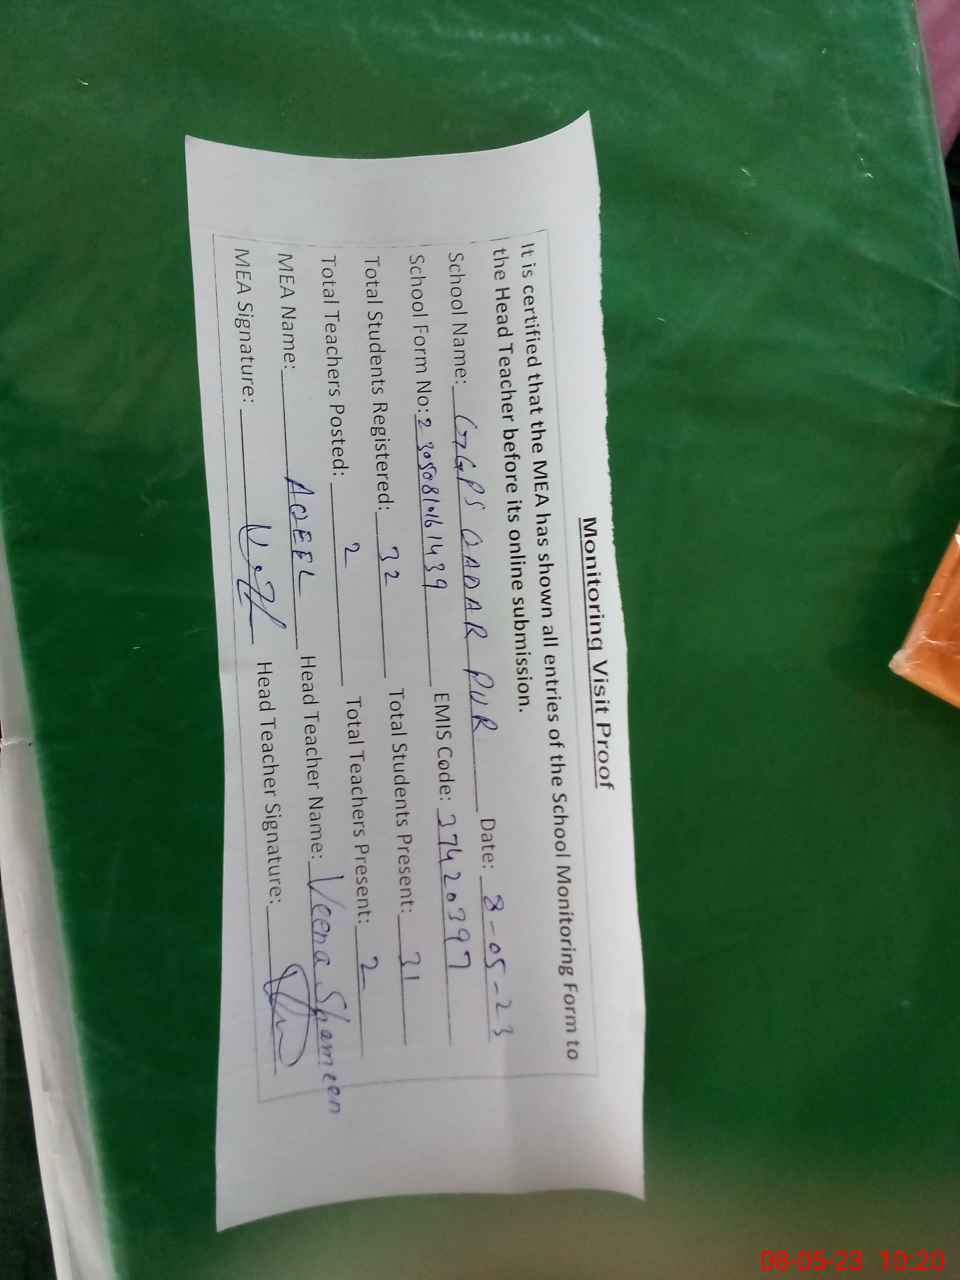 Monitoring Visit Proof
It is certified that the MEA has shown all entries of the School Monitoring Form to
the Head Teacher before its online submission.
School Name: GGPS QADAR PUR Date: 8-05-23
School Form No: 23050810161439 EMIS Code: 37420397
Total Students Registered: 32 Total Students Present: 31
Total Teachers Posted: 2 Total Teachers Present: 2
MEA Name: AQEEL Head Teacher Name: Veena Shameen
MEA Signature: Head Teacher Signature:
08-05-23 10:20